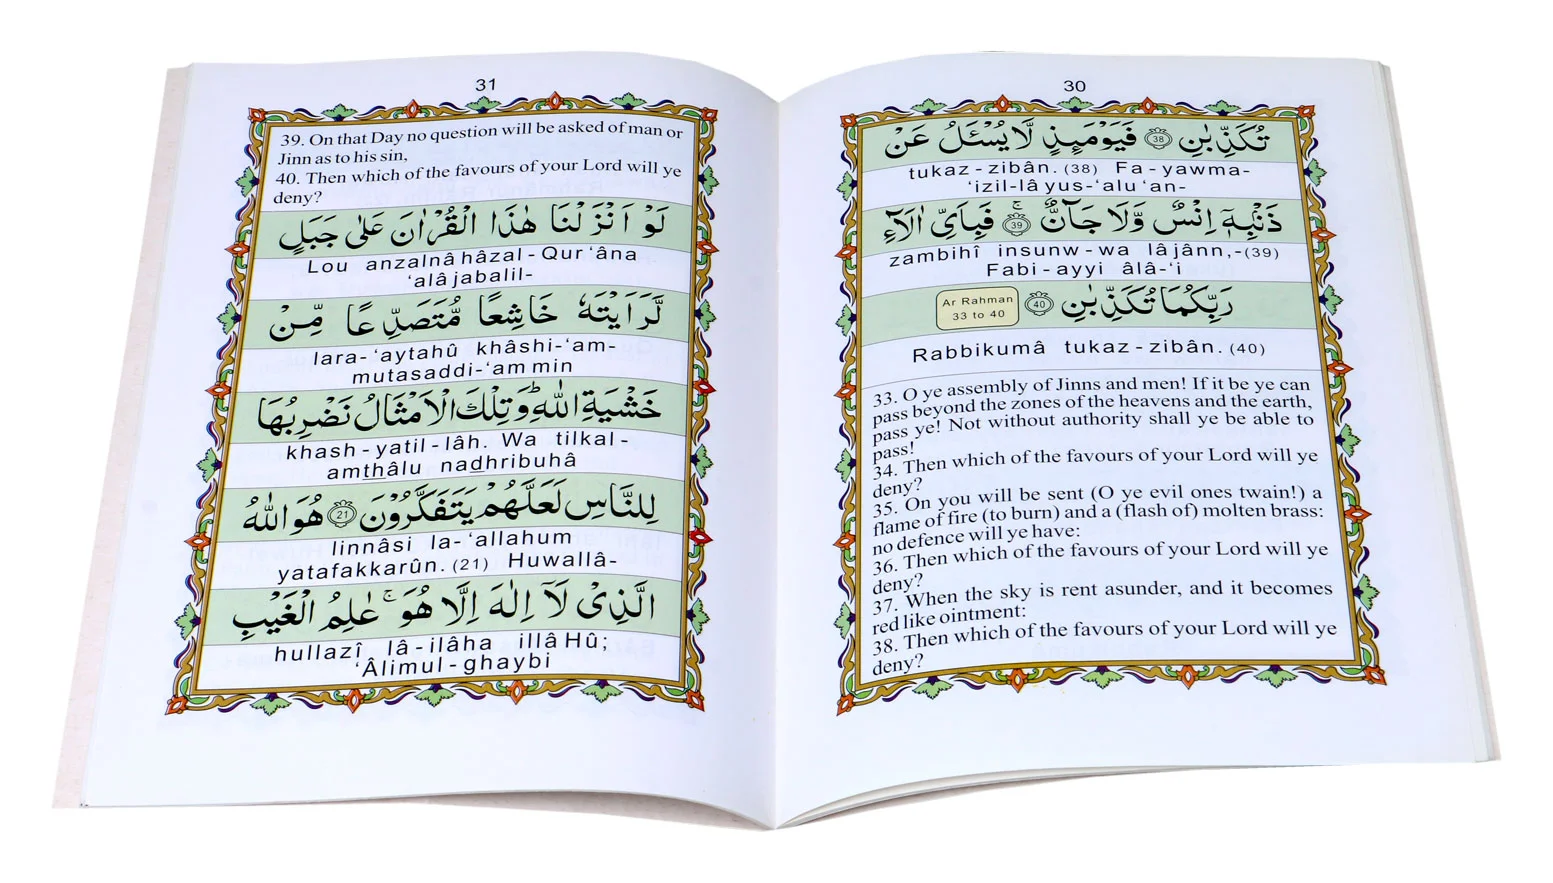 30
تُكَذِّبٰنِ ﴿38﴾ فَيَوْمَىِٕذٍ لَّا يُسْـَٔلُ عَنْ
tukaz-zibân. (38) Fa-yawma-
‘izil-lâ yus-‘alu ‘an-
ذَنْۢبِهٖۤ اِنْسٌ وَّلَا جَآنٌّ ۚ ﴿39﴾ فَبِاَىِّ اٰلَآءِ
zambihî insunw-wa lâ jânn,-(39)
Fabi-ayyi âlâ-‘i
رَبِّكُمَا تُكَذِّبٰنِ ﴿40﴾
Ar Rahman
33 to 40
Rabbikumâ tukaz-zibân. (40)
33. O ye assembly of Jinns and men! If it be ye can
pass beyond the zones of the heavens and the earth,
pass ye! Not without authority shall ye be able to
pass!
34. Then which of the favours of your Lord will ye
deny?
35. On you will be sent (O ye evil ones twain!) a
flame of fire (to burn) and a (flash of) molten brass:
no defence will ye have:
36. Then which of the favours of your Lord will ye
deny?
37. When the sky is rent asunder, and it becomes
red like ointment:
38. Then which of the favours of your Lord will ye
deny?
31
39. On that Day no question will be asked of man or
Jinn as to his sin,
40. Then which of the favours of your Lord will ye
deny?
لَوْ اَنْزَلْنَا هٰذَا الْقُرْاٰنَ عَلٰى جَبَلٍ
Lou anzalnâ hâzal-Qur‘âna
‘alâ jabalil-
لَّرَاَيْتَهٗ خَاشِعًا مُّتَصَدِّعًا مِّنْ
lara-‘aytahû khâshi-‘am-
mutasaddi-‘am min
خَشْيَةِ اللّٰهِ ؕ وَتِلْكَ الْاَمْثَالُ نَضْرِبُهَا
khash-yatil-lâh. Wa tilkal-
amthâlu nadhribuhâ
لِلنَّاسِ لَعَلَّهُمْ يَتَفَكَّرُوْنَ ﴿21﴾ هُوَ اللّٰهُ
linnâsi la-‘allahum
yatafakkarûn. (21) Huwallâ-
الَّذِىْ لَآ اِلٰهَ اِلَّا هُوَ ۚ عٰلِمُ الْغَيْبِ
hullazî lâ-ilâha illâ Hû;
‘Âlimul-ghaybi